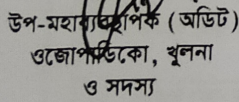 উপ-মহাব্যবস্থাপক (অডিট)
ওজোপাডিকো, খুলনা
ও সদস্য